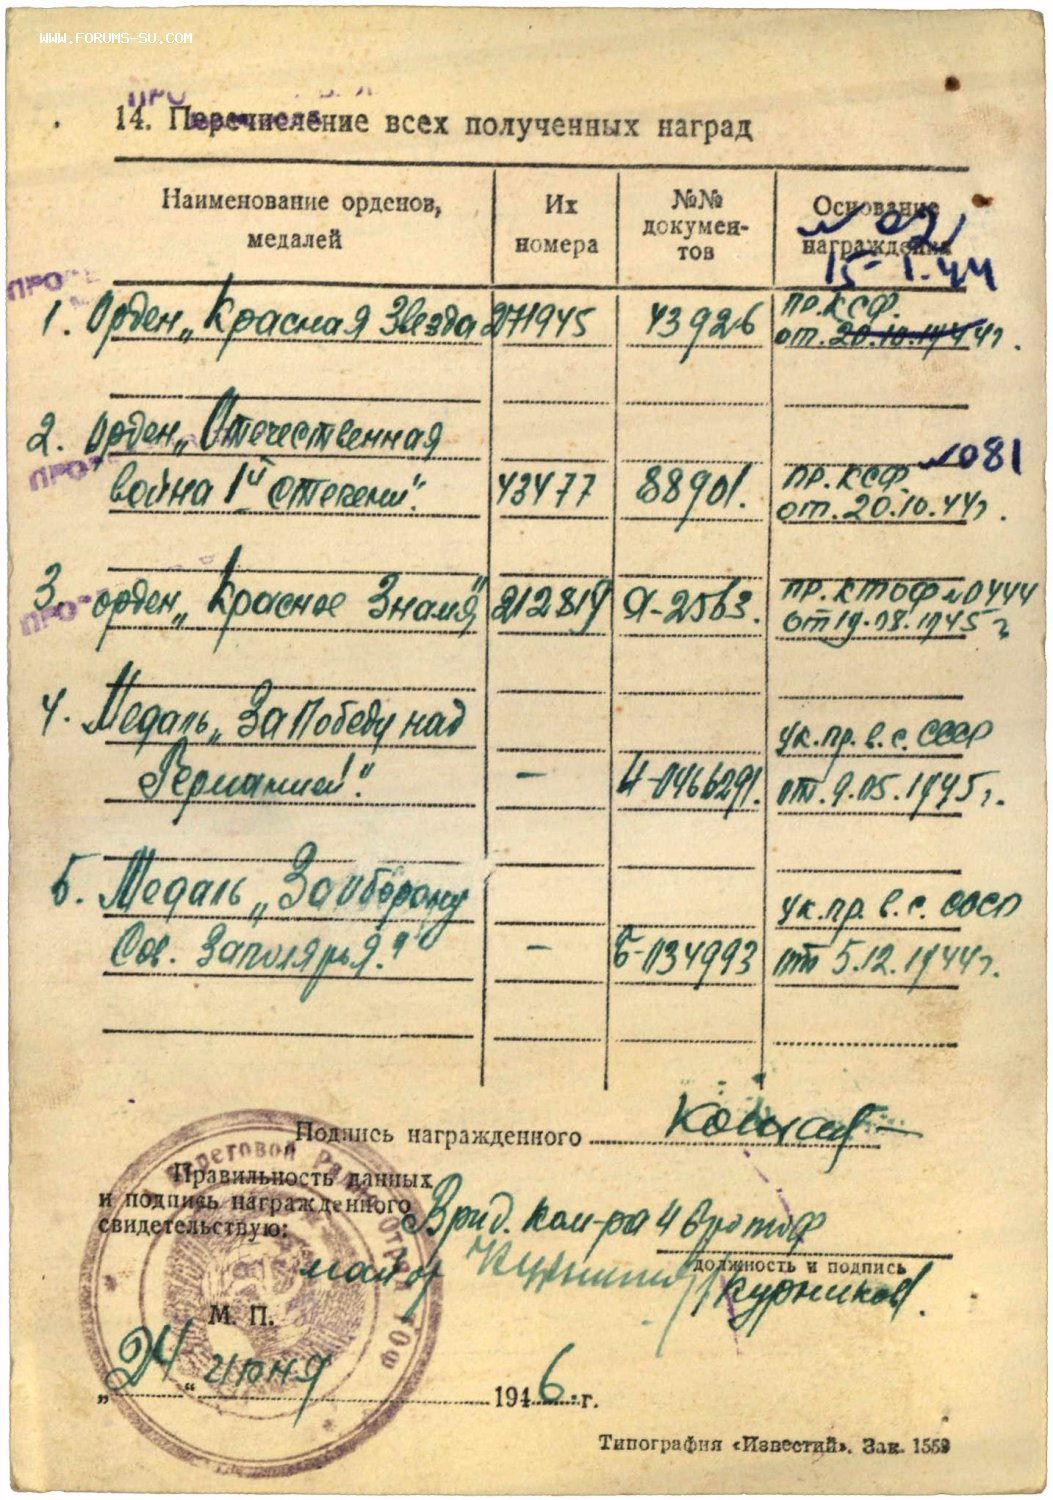 WWW.FORUMS-SU.COM
14. Перечисление всех полученных наград
Наименование орденов, медалей
Их номера
№№ документов
Основание награждения
15-1.44
1. Орден „Красная Звезда 271945 43926 пр. КСФ.
от. 20.10.1944г.
2. Орден „Отечественная
война 1й степени“. 43477 88901. пр. КСФ. №081
от. 20.10.44г.
3. орден „Красное Знамя“ А-2563. пр. КТОФ №0444
от 19.08.1945г
4. Медаль „За Победу над ук. пр. в. с. СССР
Германией“. - от. 9.05.1945г.
5. Медаль „За оборону ук. пр. в. с. СССР
Сов. Заполярья.“ - Б-034993 от 5.12.1944г.
Подпись награжденного
Правильность данных
и подпись награжденного
свидетельствую:
Врид. ком-ра 4
должность и подпись
майор Курников
М. П.
„24“ июня 1946. г.
Типография «Известий». Зак. 1559